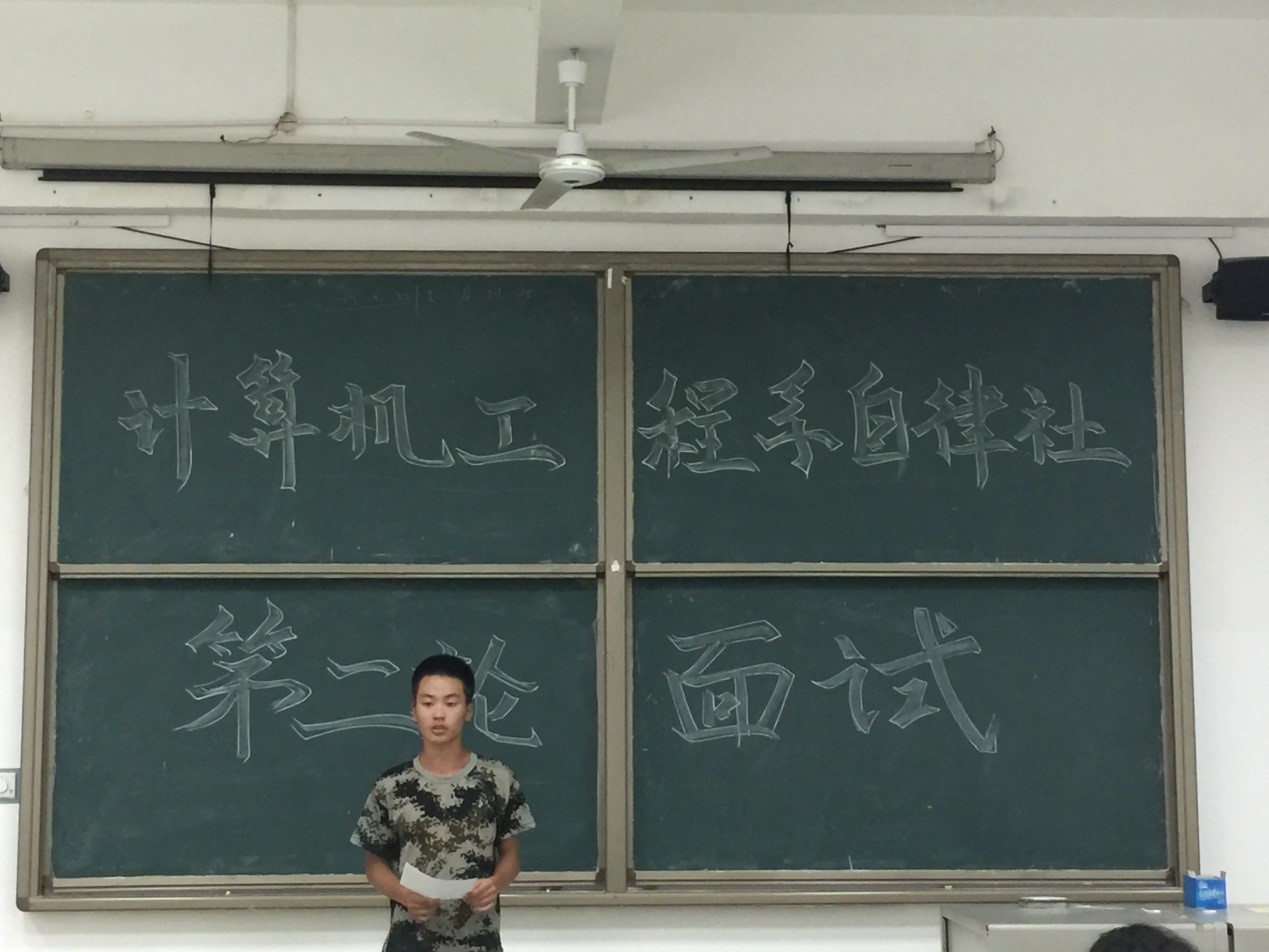 计算机工程系自律社
第二轮面试